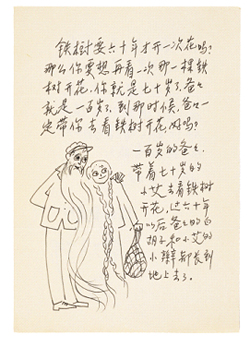 铁树要六十年才开一次花吗?
那么你要想再看一次那一棵铁
树开花,你就是七十岁了,爸爸
就是一百岁了,到那时候,爸爸一
定带你去看铁树开花,好吗?
一百岁的爸爸,
带着七十岁的
小艾去看铁树
开花,过六十年
以后爸爸的白
胡子和小艾的
小辫都长到
地上去了。